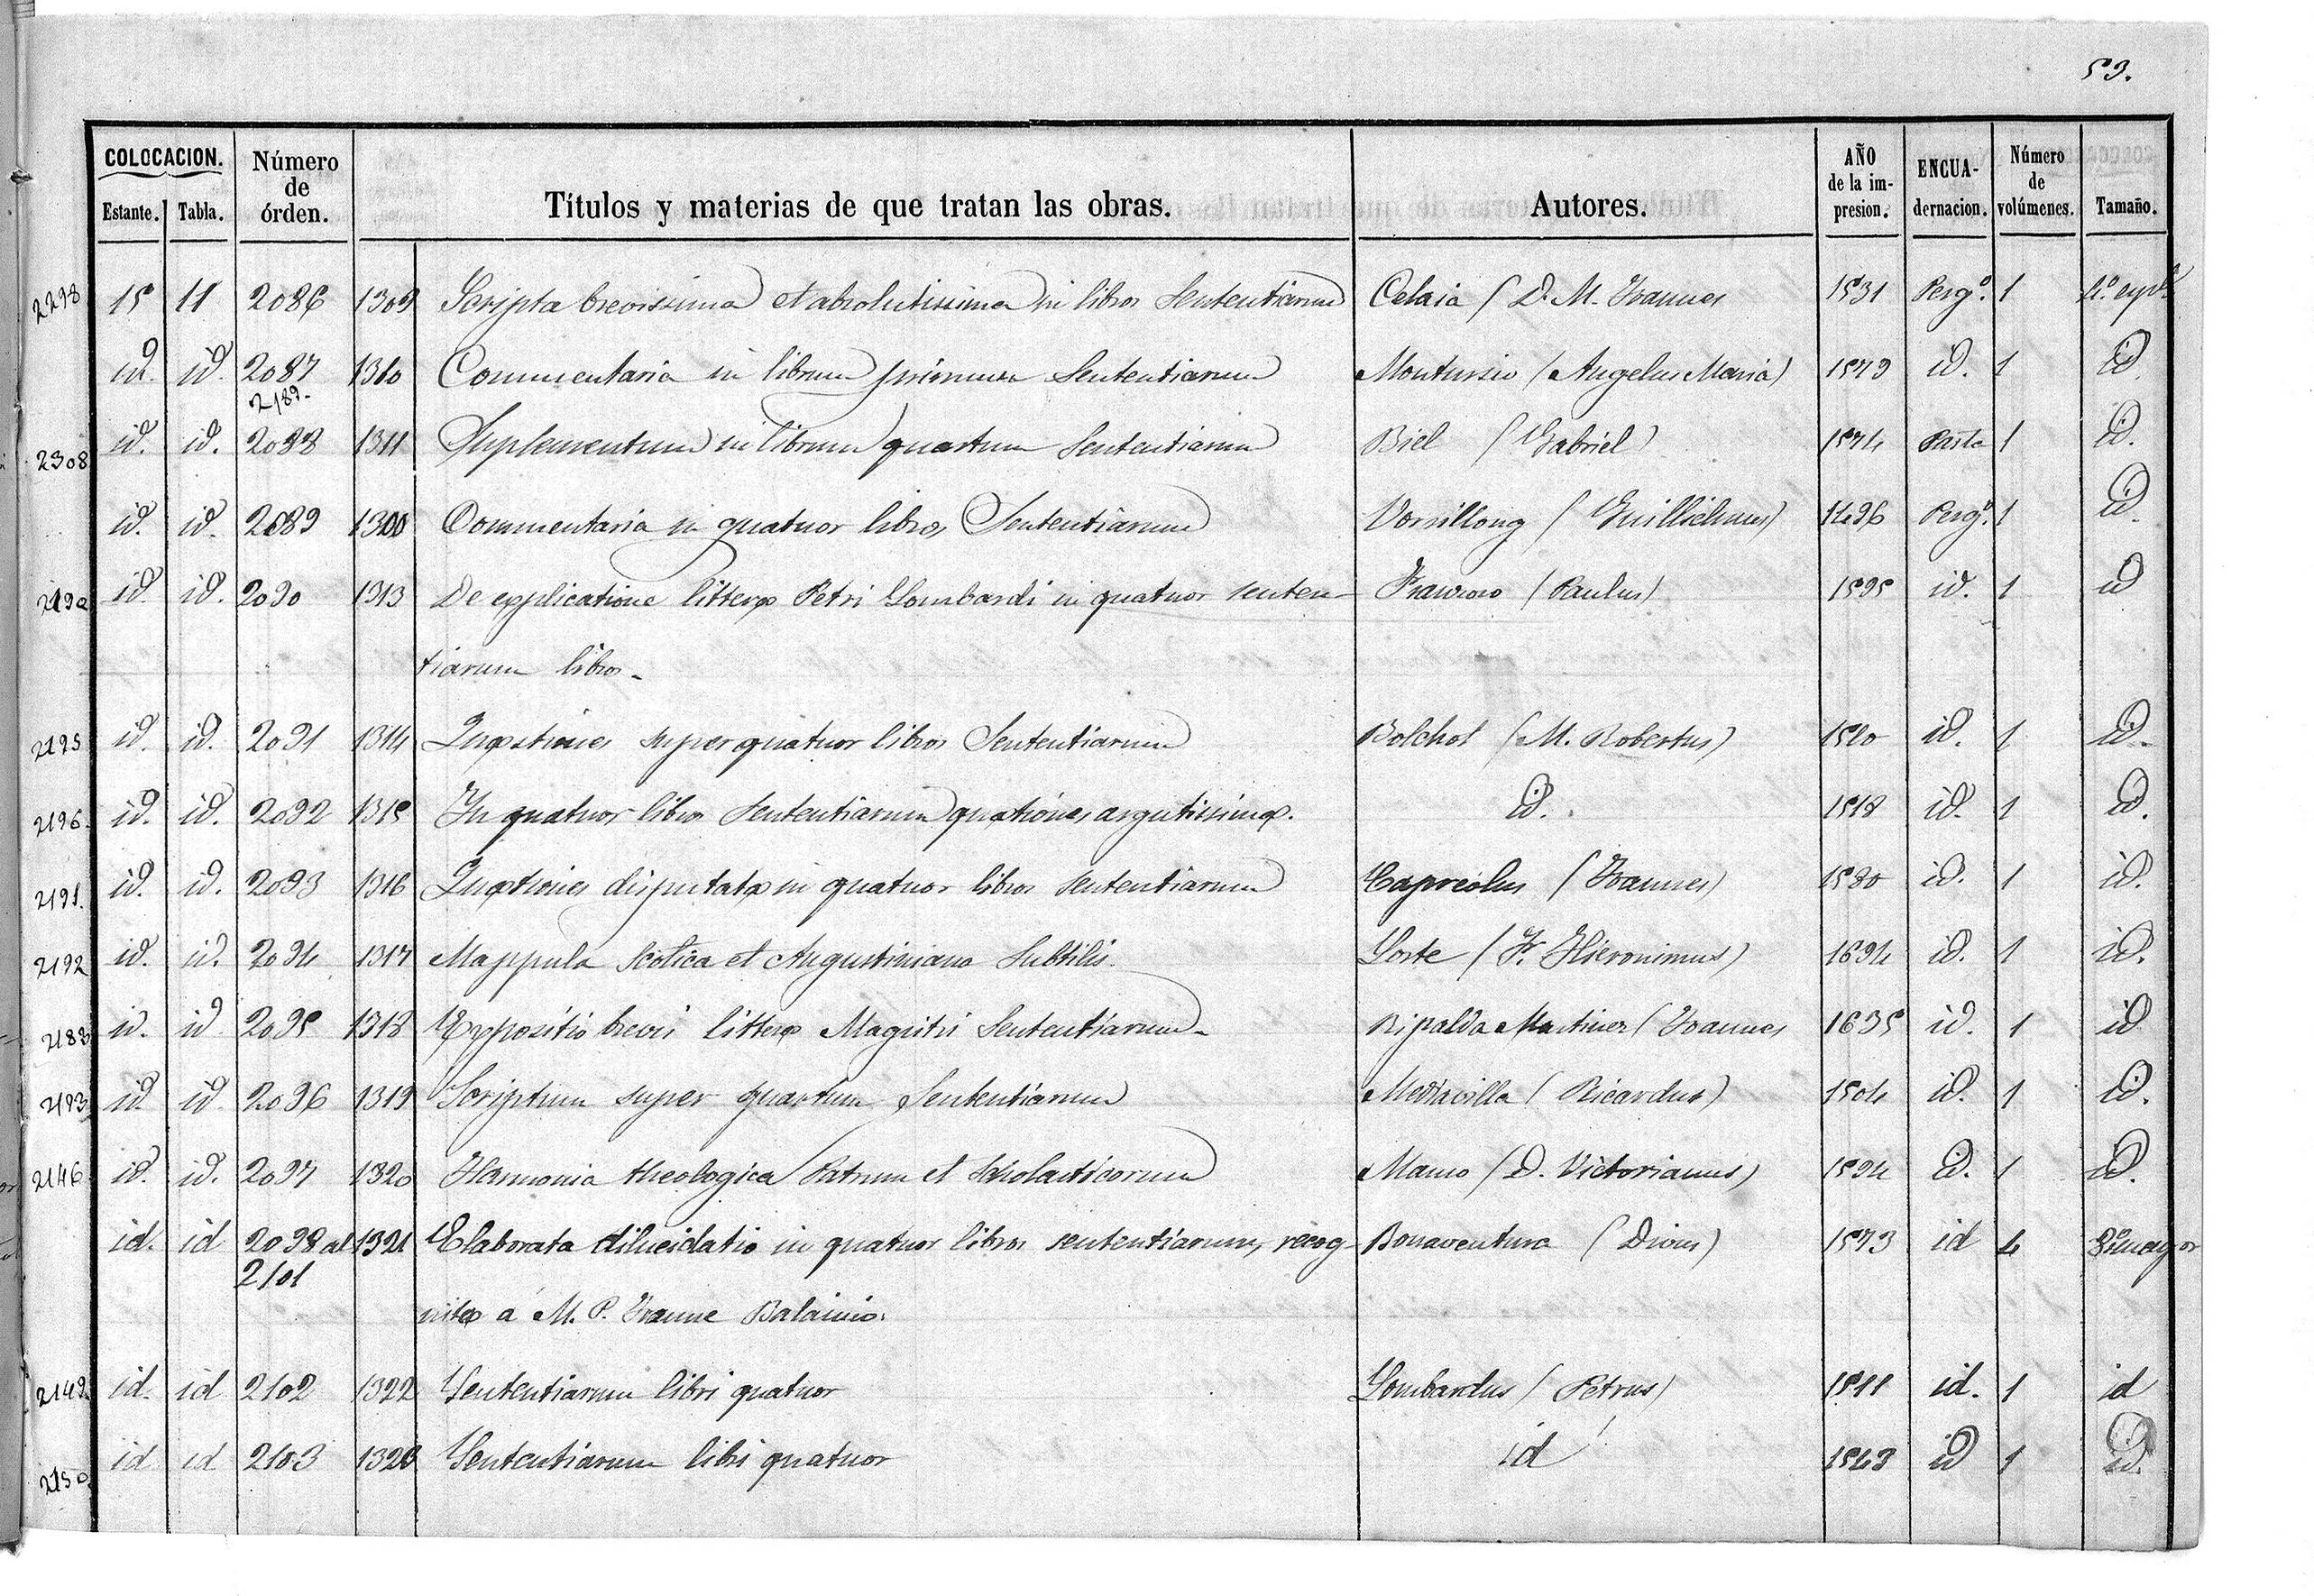 53.
COLOCACION. Número de órden. Títulos y materias de que tratan las obras. Autores. AÑO de la impresion. ENCUADERNACION. Número de volúmenes. Tamaño.
Estante. Tabla.
2298 15 11 2086 1309 Scripta brevissima et absolutissima in libros Sententiarum Celaia (D. M. Ioannes 1531 Pergº. 1
id. id. 2087 1310 Commentaria in librum primum Sententiarum Montursio (Angelus Maria) 1579 id. 1 id
2189.
2308 id. id. 2088 1311 Suplementum in librum quartum Sententiarum Biel (Gabriel) 1574 Pasta 1 id.
id. id. 2089 1300 Commentaria in quatuor libros Sententiarum Vorrillong (Guillielmus) 1496 Pergº. 1 id.
2190 id. id. 2090 1313 De explicatione litteræ Petri Lombardi in quatuor senten- (Paulus) 1595 id. 1 id
tiarum libros.
2195 id. id. 2091 1314 Quæstiones super quatuor libros Sententiarum Bolchot (M. Robertus) 1520 id. 1 id.
2196. id. id. 2092 1315 In quatuor libros Sententiarum quæstiones argutissimæ. id. 1518 id. 1 id.
2191. id. id. 2093 1316 Quæstiones disputatæ in quatuor libros sententiarum Capreolus (Ioannes) 1580 id. 1 id.
2192 id. id. 2094 1317 Mappula Scotica et Augustiniana Subtilis. Lorte (Fr. Hieronimus) 1694 id. 1 id.
2183 id. id 2095 1318 Expositio brevis litteræ Magistri Sententiarum. Ripalda Martinez (Ioannes 1635 id. 1 id
2193 id. id. 2096 1319 Scriptum super quartum Sententiarum Mediavilla (Ricardus) 1504 id. 1 id.
2146 id. id. 2097 1320 Harmonia theologica Patrum et Scholasticorum Manso (D. Victorianus) 1594 id. 1 id.
id. id 2098 al 1321 Elaborata dilucidatio in quatuor libros sententiarum, recog- Bonaventura (Divus) 1573 id 4 8º mayor
2101
nitæ á M. P. Ioanne Balainio.
2149. id. id 2102 1322 Sententiarum libri quatuor Lombardus (Petrus) 1511 id. 1 id
2150. id id 2103 1323 Sententiarum libri quatuor id 1543 id 1 id.